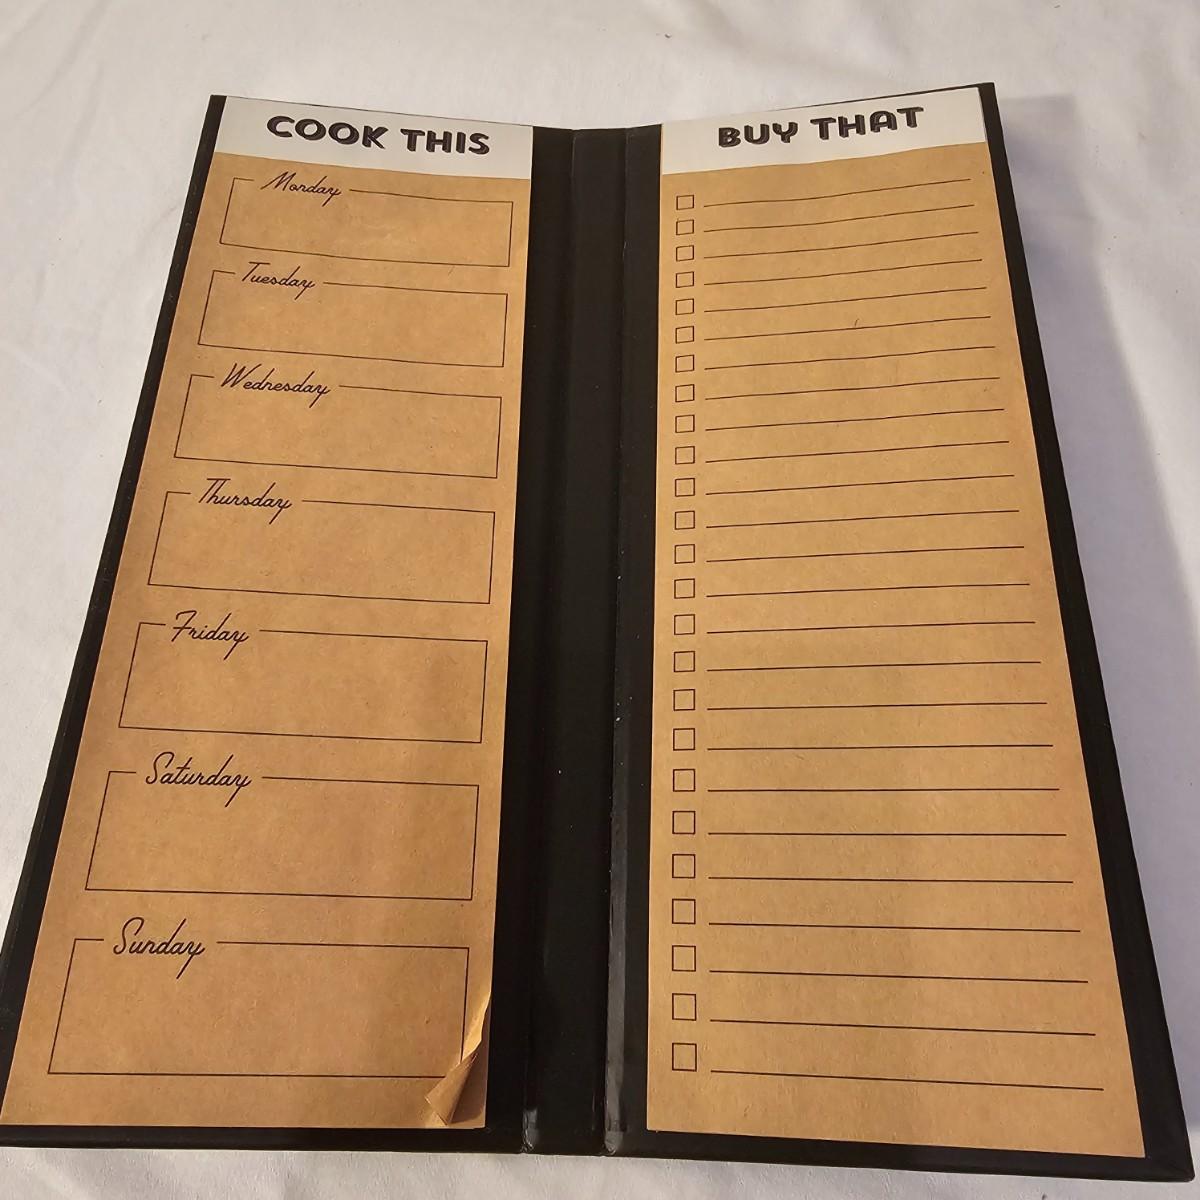 COOK THIS
Monday
Tuesday
Wednesday
Thursday
Friday
Saturday
Sunday
BUY THAT